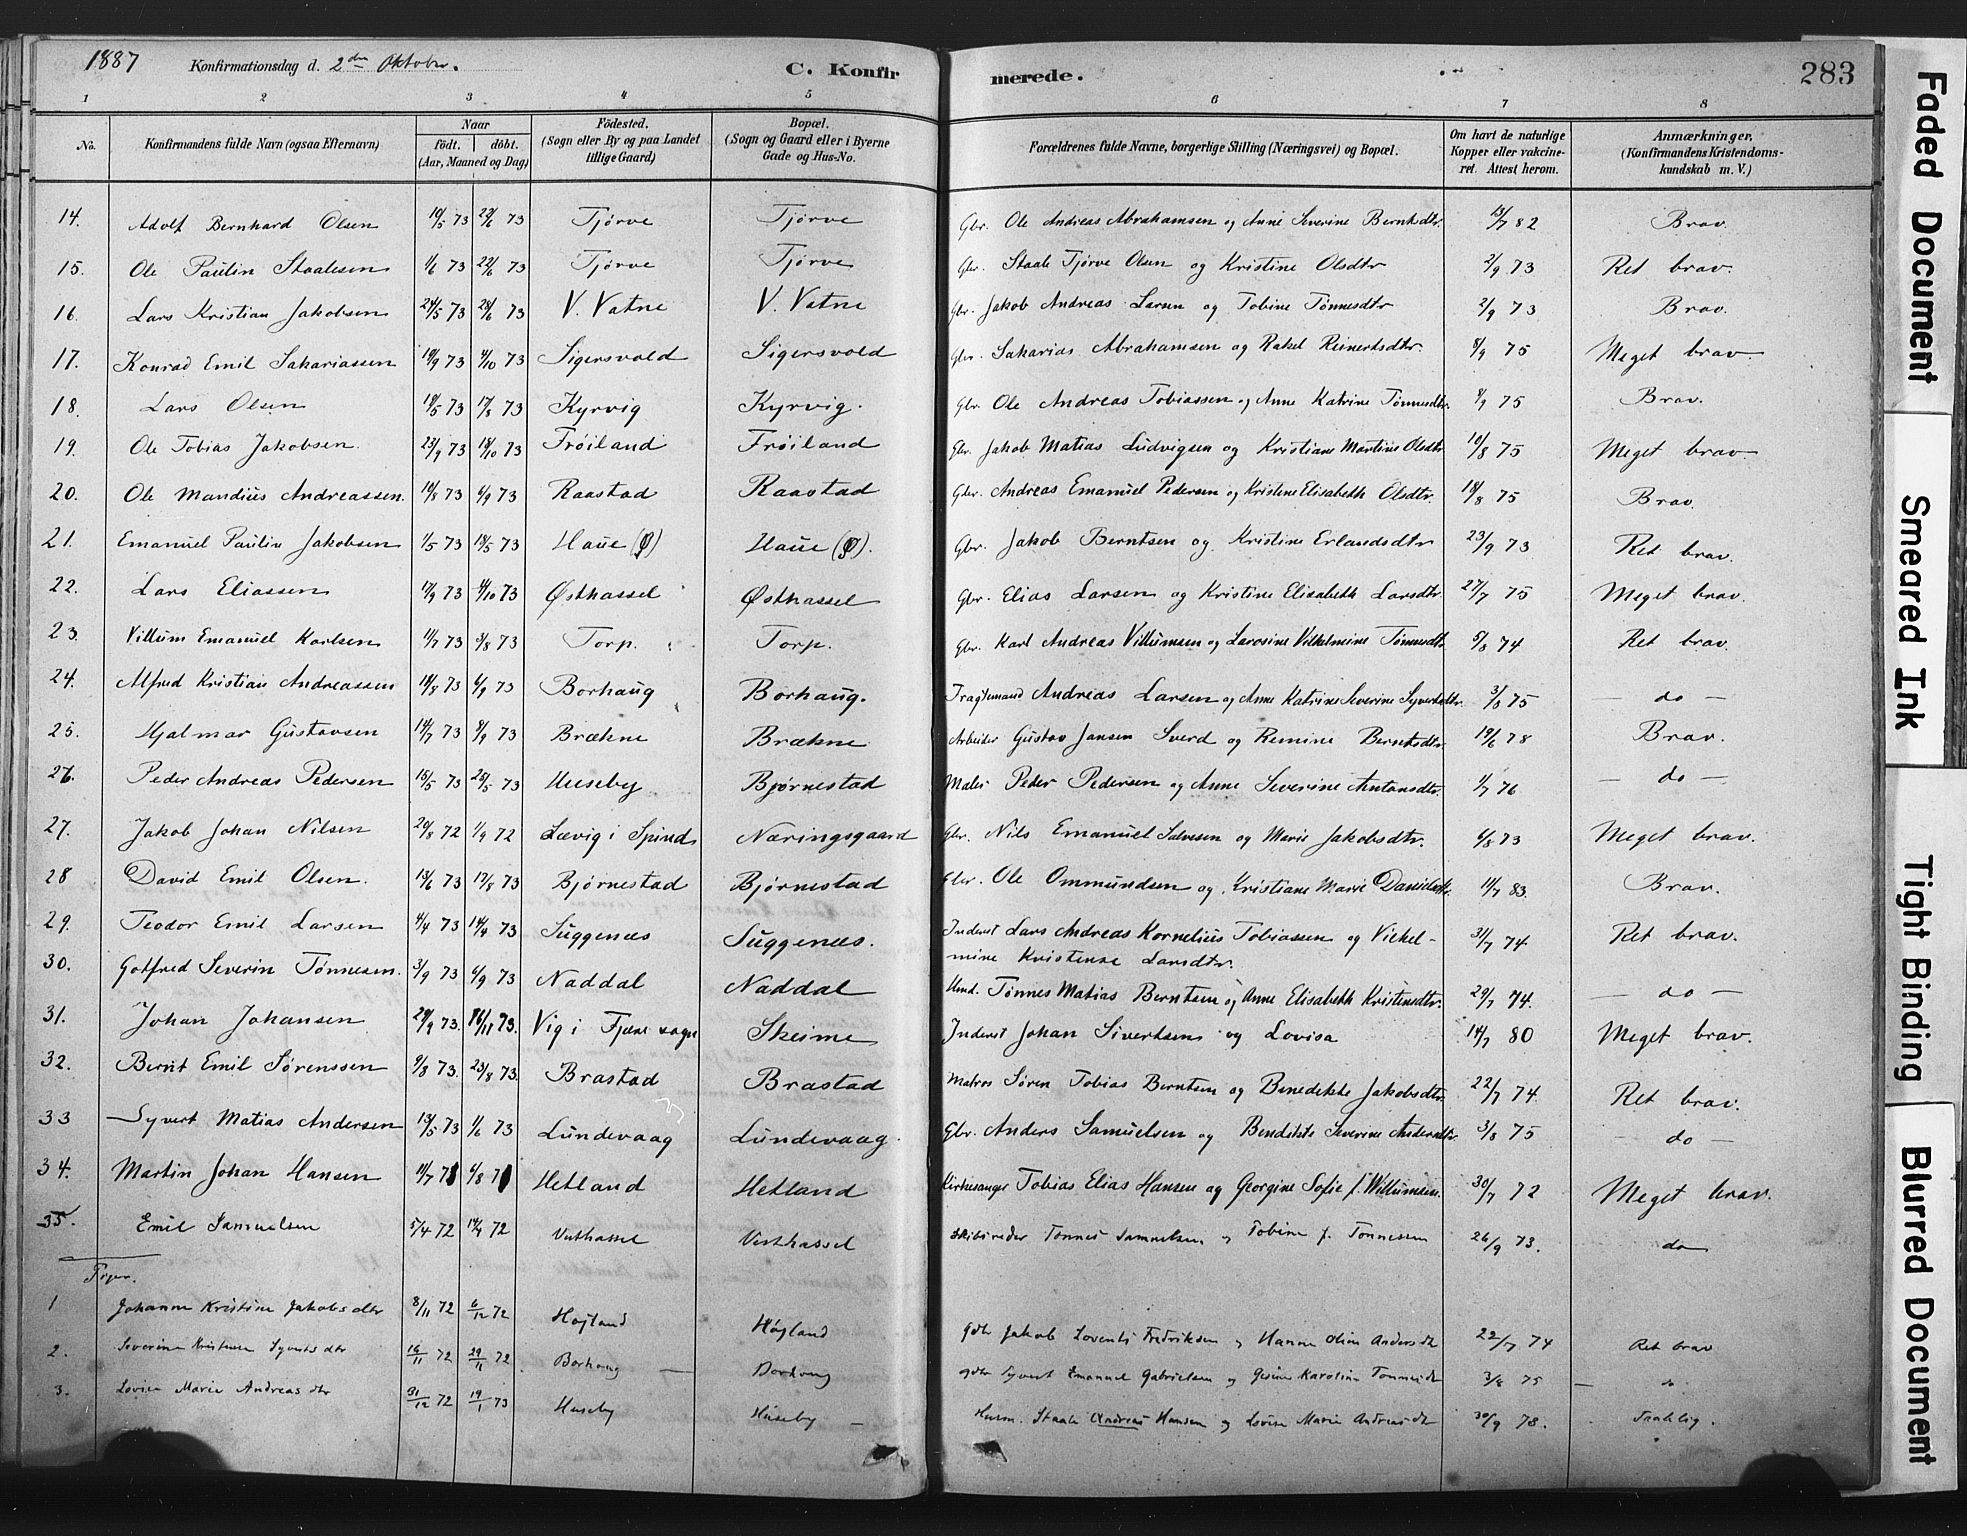 1887 Konfirmationsdag d. 2den Oktober. C. Konfirmerede. 283
1 2 3 4 5 6 7 8
No. Konfirmandens fulde Navn (ogsaa Efternavn) Naar født. døbt. (Aar, Maaned og Dag) Fødested. (Sogn eller By og paa Landet tillige Gaard) Bopæl. (Sogn og Gaard eller i Byerne Gade og Hus-No. Forældrenes fulde Navne, borgerlige Stilling (Næringsvei) og Bopæl. Om havt de naturlige Kopper eller vakcineret. Attest herom. Anmærkninger. (Konfirmandens Kristendomskundskab m. V.)
14. Adolf Bernhard Olsen 10/5 73 22/6 73 Tjørve Tjørve Gbr. Ole Andreas Abrahamsen og Anne Severine Berntsdtr. 13/7 82 Brav.
15. Ole Paulin Staalesen 1/6 73 22/6 73 Tjørve Tjørve Gbr. Staale Tjørve Olsen og Kristine Olsdtr 2/9 73 Ret brav.
16. Lars Kristian Jakobsen 24/5 73 28/6 73 V. Vatne V. Vatne Gbr. Jakob Andreas Larsen og Tobine Tønnesdtr 2/9 73 Brav.
17. Konrad Emil Sakariassen 19/9 73 4/10 73 Sigersvold Sigersvold Gbr. Sakarias Abrahamsen og Rakel Reinertsdtr. 8/9 75 Meget brav
18. Lars Olsen 18/5 73 17/8 73 Kyrvig Kyrvig. Gbr. Ole Andreas Tobiassen og Anne Katrine Tønnesdtr. 8/9 75 Brav.
19. Ole Tobias Jakobsen. 23/9 73 18/10 73 Frøiland Frøiland Gbr. Jakob Matias Ludvigsen og Kristiane Martine Olsdtr 10/8 75 Meget brav
20. Ole Mandius Andreassen. 10/8 73 6/9 73 Raastad Raastad Gbr. Andreas Emanuel Pedersen og Kristine Elisabeth Olsdtr. 18/8 75 Brav.
21. Emanuel Paulin Jakobsen 1/5 73 18/5 73 Haue (Ø) Haue (Ø). Gbr. Jakob Berntsen og Kristine Erlandsdtr 23/9 73 Ret brav.
22. Lars Eliassen 17/9 73 4/10 73 Østhassel Østhassel Gbr. Elias Larsen og Kristine Elisabeth Larsdtr. 27/7 75 Meget brav.
23. Villum Emanuel Karlsen 11/7 73 3/8 73 Torp. Torp. Gbr. Karl Andreas Villumsen og Larosine Vilhelmine Tønnesdtr 5/8 74 Ret brav.
24. Alfred Kristian Andreassen 18/8 73 6/9 73 Borhaug Borhaug. Fragtemand Andreas Larsen og Anne Katrine Severine Syvertsdtr. 3/8 75 — do —
25. Hjalmar Gustavsen 14/7 73 8/9 73 Brækne Brækne Arbeider Gustav Jansen Sverd og Remine Berntsdtr. 19/6 78 Brav.
26. Peder Andreas Pedersen 15/5 73 25/5 73 Huseby Bjørnestad Maler Peder Pedersen og Anne Severine Antonsdtr. 1/7 76 — do —
27. Jakob Johan Nilsen 20/8 72 1/9 72 Lævig i Spind Næringsgaard Gbr. Nils Emanuel Salvesen og Marie Jakobsdtr. 6/8 73 Meget brav.
28 David Emil Olsen. 13/6 73 17/8 73 Bjørnestad Bjørnestad Gbr. Ole Ommundsen og Kristiane Marie Danielsdtr. 11/7 83. Brav.
29. Teodor Emil Larsen 4/4 73 14/4 73 Suggenæs Suggenæs. Inderst Lars Andreas Kornelius Tobiassen og Vilhel-
mine Kristense Larsdtr. 31/7 74 Ret brav.
30. Gotfred Severin Tønnesen. 3/9 73 6/9 73 Naddal Naddal Umd. Tønnes Matias Berntsen og Anne Elisabeth Kristensdtr. 29/7 74. — do —
31. Johan Johansen 29/9 73. 16/11 73. Vig i Fjære sogn Skeime Inderst Johan Sivertsen og Lovisa 14/7 80 Meget brav.
32. Bernt Emil Sørenssen 9/8 73. 23/8 73. Brastad Brastad Matros Søren Tobias Berntsen og Benedikte Jakobsdtr. 22/7 74. Ret brav.
33 Syvert Matias Andersen 13/5 73 1/6 73 Lundevaag Lundevaag. Gbr. Anders Samuelsen og Bendikte Severine Andersdtr 3/8 75 — do —
34. Martin Johan Hansen 11/7 71 6/8 71 Hetland Hetland Kirkesanger Tobias Elias Hansen og Georgine Sofie f. Willumsen. 30/7 72 Meget brav.
35. Emil Samuelsen 5/4 72 14/4 72 Vesthassel Vesthassel Skibsreder Tønnes Samuelsen og Tobine f. Tønnessen 26/9 73. do
Piger.
1 Johanne Kristine Jakobsdtr 8/11 72 6/12 72 Højland Højland Gdbr Jakob Lovents Fredriksen og Hanne Oline Andersdtr 22/7 74 Ret brav
2. Severine Kristense Syvertsdtr 16/11 72 29/11 72. Borhaug — Borhaug Gdbr Syvert Emanuel Gabrielsen og Gesine Karoline Tønnesdtr 3/8 75 — do
3. Lovise Marie Andreasdtr 31/12 72 19/1 73 Huseby Huseby — Husm. Staale Andreas Hansen og Lovise Marie Andreasdtr 30/9 78. Taalelig.
Faded Document
Smeared Ink
Tight Binding
Blurred Document